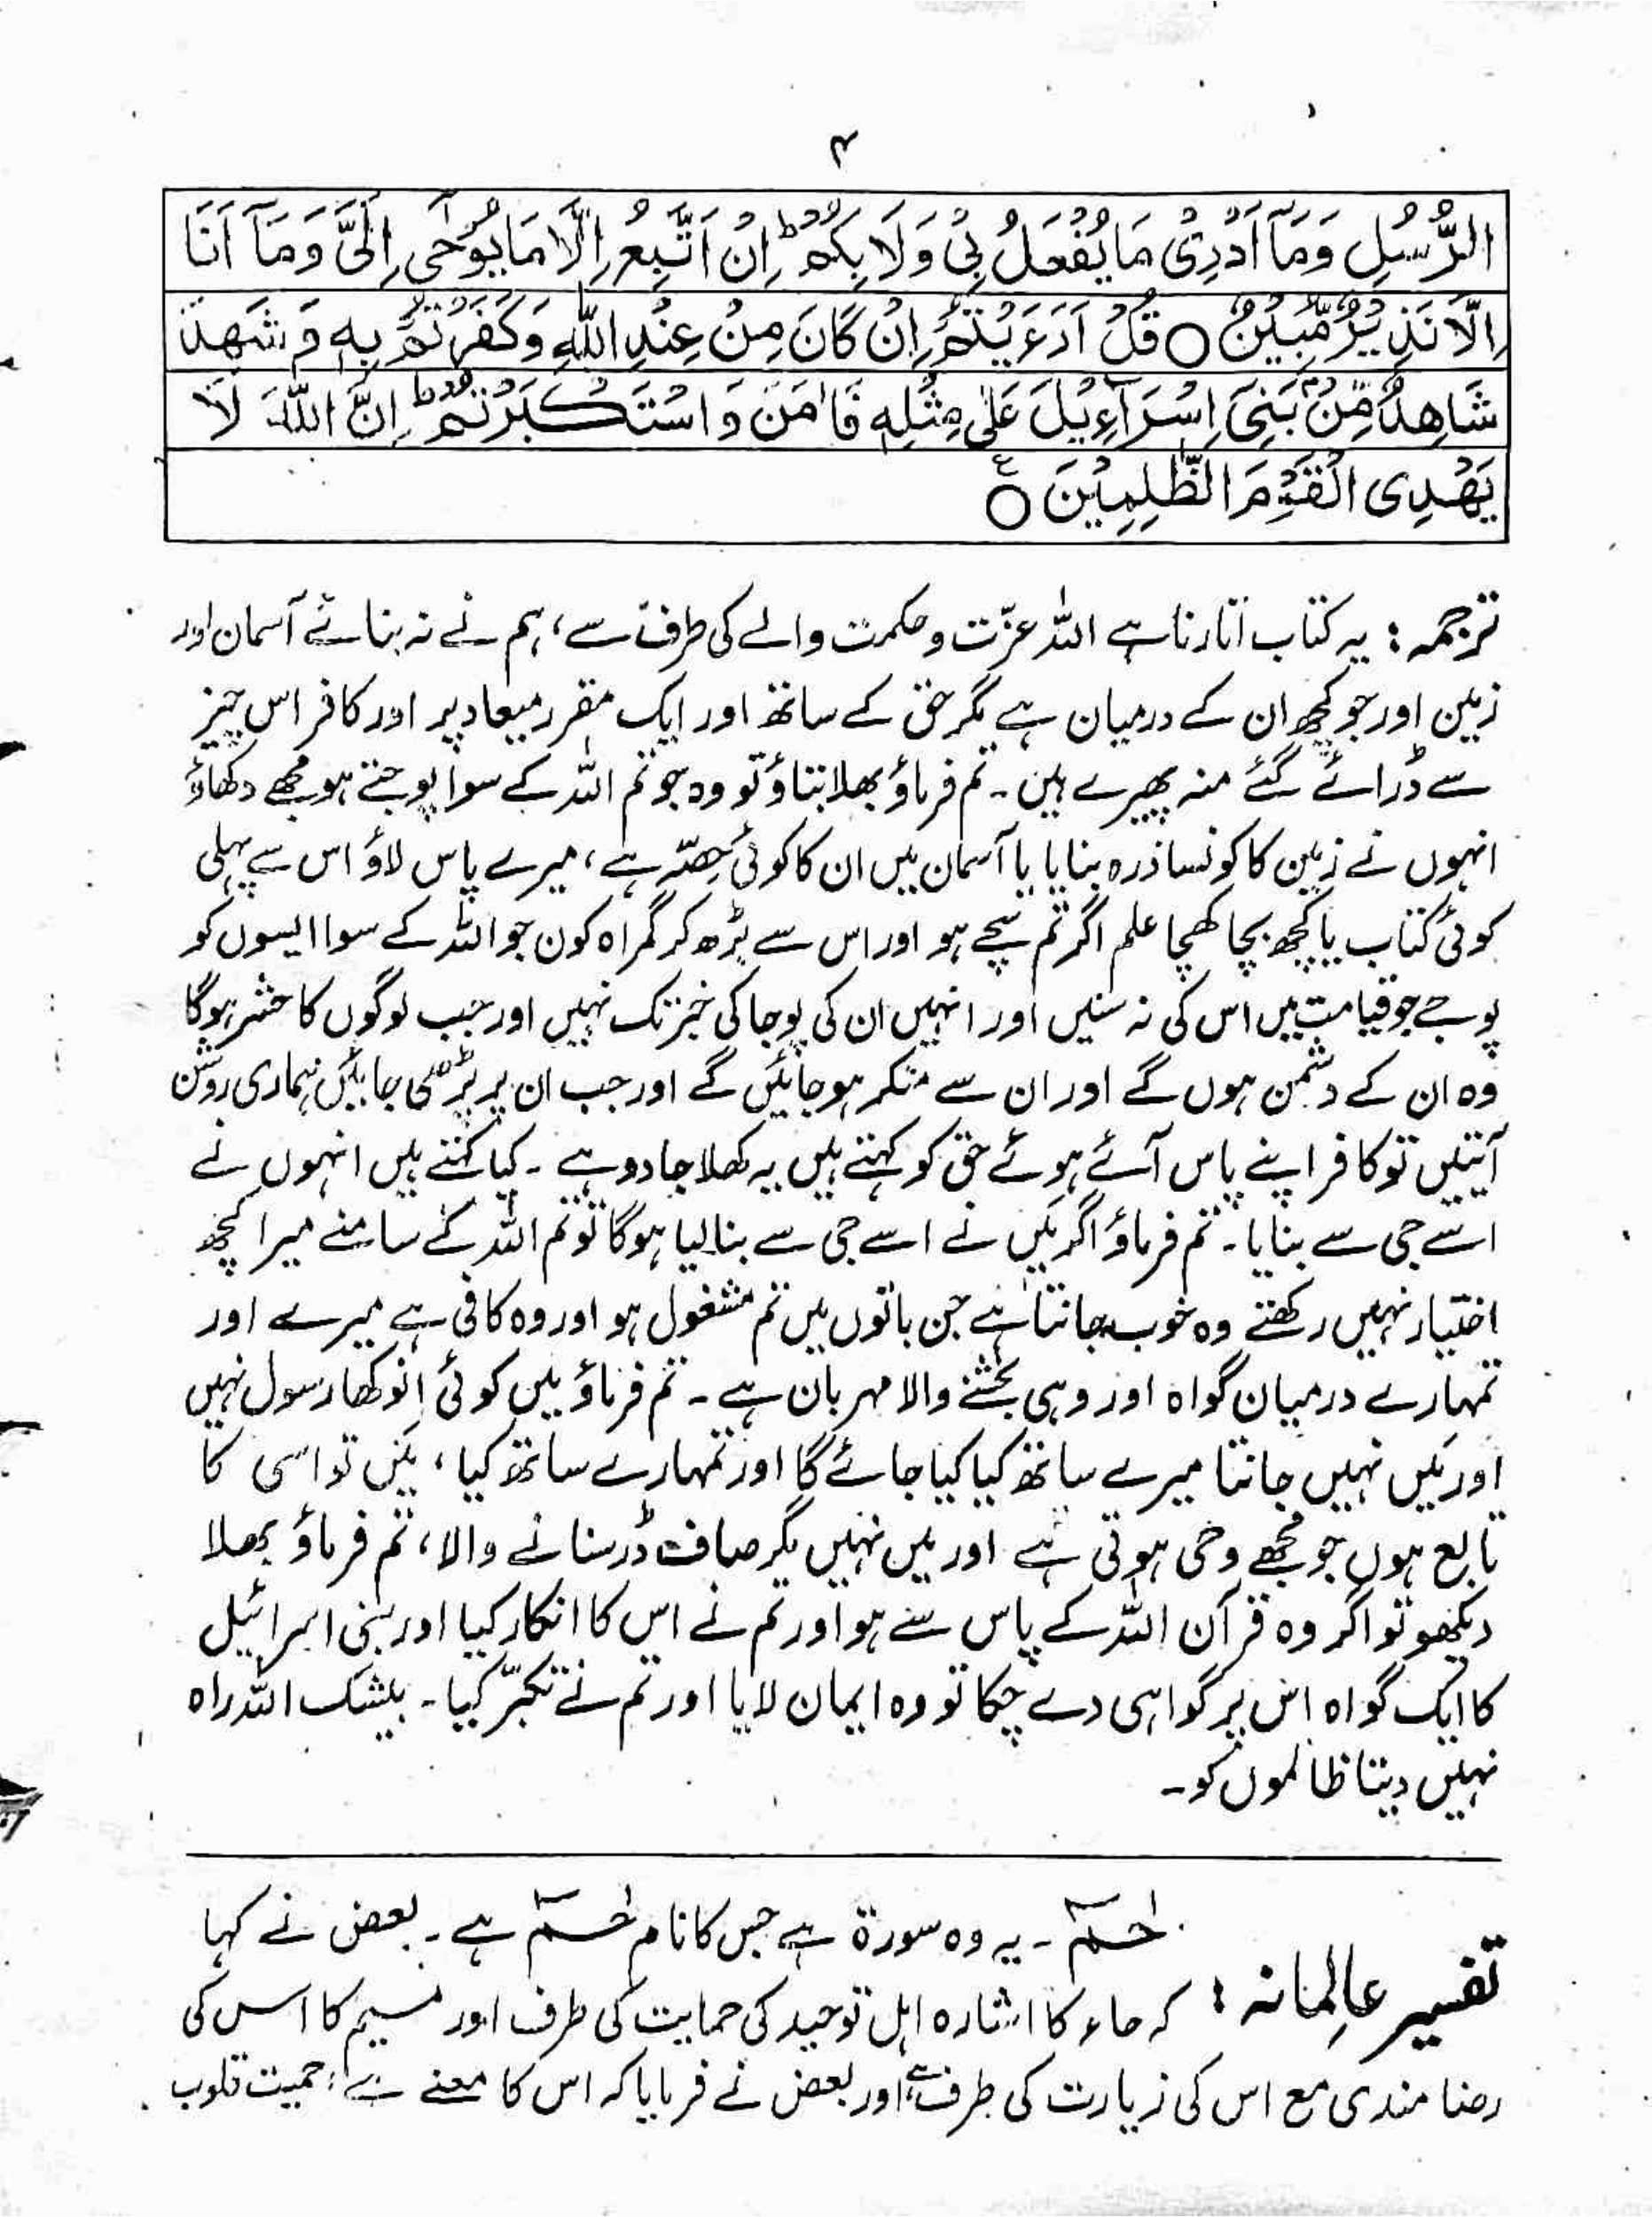 ۴
الرُّسُلِ وَمَآ اَدْرِیْ مَا یُفْعَلُ بِیْ وَلَا بِکُمْ ؕ اِنْ اَتَّبِعُ اِلَّا مَا یُوْحٰۤی اِلَیَّ وَمَآ اَنَا
اِلَّا نَذِیْرٌ مُّبِیْنٌ ○ قُلْ اَرَءَیْتُمْ اِنْ کَانَ مِنْ عِنْدِ اللّٰهِ وَکَفَرْتُمْ بِهٖ وَ شَهِدَ
شَاهِدٌ مِّنْۢ بَنِیْۤ اِسْرَآءِیْلَ عَلٰی مِثْلِهٖ فَاٰمَنَ وَ اسْتَکْبَرْتُمْ ؕ اِنَّ اللّٰهَ لَا
یَهْدِی الْقَوْمَ الظّٰلِمِیْنَ ○ ع
ترجمہ : یہ کتاب اتارنا ہے اللہ عزّت و حکمت والے کی طرف سے، ہم نے نہ بنائے آسمان اور
زمین اور جو کچھ ان کے درمیان ہے مگر حق کے ساتھ اور ایک مقرر میعاد پر اور کافر اس چیز
سے ڈرائے گئے منہ پھیرے ہیں۔ تم فرماؤ بھلا بتاؤ تو وہ جو تم اللہ کے سوا پوجتے ہو مجھے دکھاؤ
انہوں نے زمین کا کونسا ذرہ بنایا یا آسمان میں ان کا کوئی حصّہ ہے، میرے پاس لاؤ اس سے پہلی
کوئی کتاب یا کچھ بچا کھچا علم اگر تم سچے ہو اور اس سے بڑھ کر گمراہ کون جو اللہ کے سوا ایسوں کو
پوجے جو قیامت میں اس کی نہ سنیں اور انہیں ان کی پوجا کی خبر تک نہیں اور جب لوگوں کا حشر ہوگا
وہ ان کے دشمن ہوں گے اور ان سے منکر ہو جائیں گے اور جب ان پر پڑھی جائیں ہماری روشن
آیتیں تو کافر اپنے پاس آئے ہوئے حق کو کہتے ہیں یہ کھلا جادو ہے۔ کیا کہتے ہیں انہوں نے
اسے جی سے بنایا۔ تم فرماؤ اگر میں نے اسے جی سے بنا لیا ہوگا تو تم اللہ کے سامنے میرا کچھ
اختیار نہیں رکھتے وہ خوب جانتا ہے جن باتوں میں تم مشغول ہو اور وہ کافی ہے میرے اور
تمہارے درمیان گواہ اور وہی بخشنے والا مہربان ہے۔ تم فرماؤ میں کوئی انوکھا رسول نہیں
اور میں نہیں جانتا میرے ساتھ کیا کیا جائے گا اور تمہارے ساتھ کیا، میں تو اسی کا
تابع ہوں جو مجھے وحی ہوتی ہے اور میں نہیں مگر صاف ڈر سنانے والا، تم فرماؤ بھلا
دیکھو تو اگر وہ قرآن اللہ کے پاس سے ہو اور تم نے اس کا انکار کیا اور بنی اسرائیل
کا ایک گواہ اس پر گواہی دے چکا تو وہ ایمان لایا اور تم نے تکبّر کیا۔ بیشک اللہ راہ
نہیں دیتا ظالموں کو۔
تفسیر عالِمانہ : حٰمٓ ۔ یہ وہ سورۃ ہے جس کا نام حٰمٓ ہے۔ بعض نے کہا
کہ حاء کا اشارہ اہل توحید کی حمایت کی طرف اور میم کا اس کی
رضا مندی مع اس کی زیارت کی طرف ہے، اور بعض نے فرمایا کہ اس کا معنے ہے: حمیت قلوب